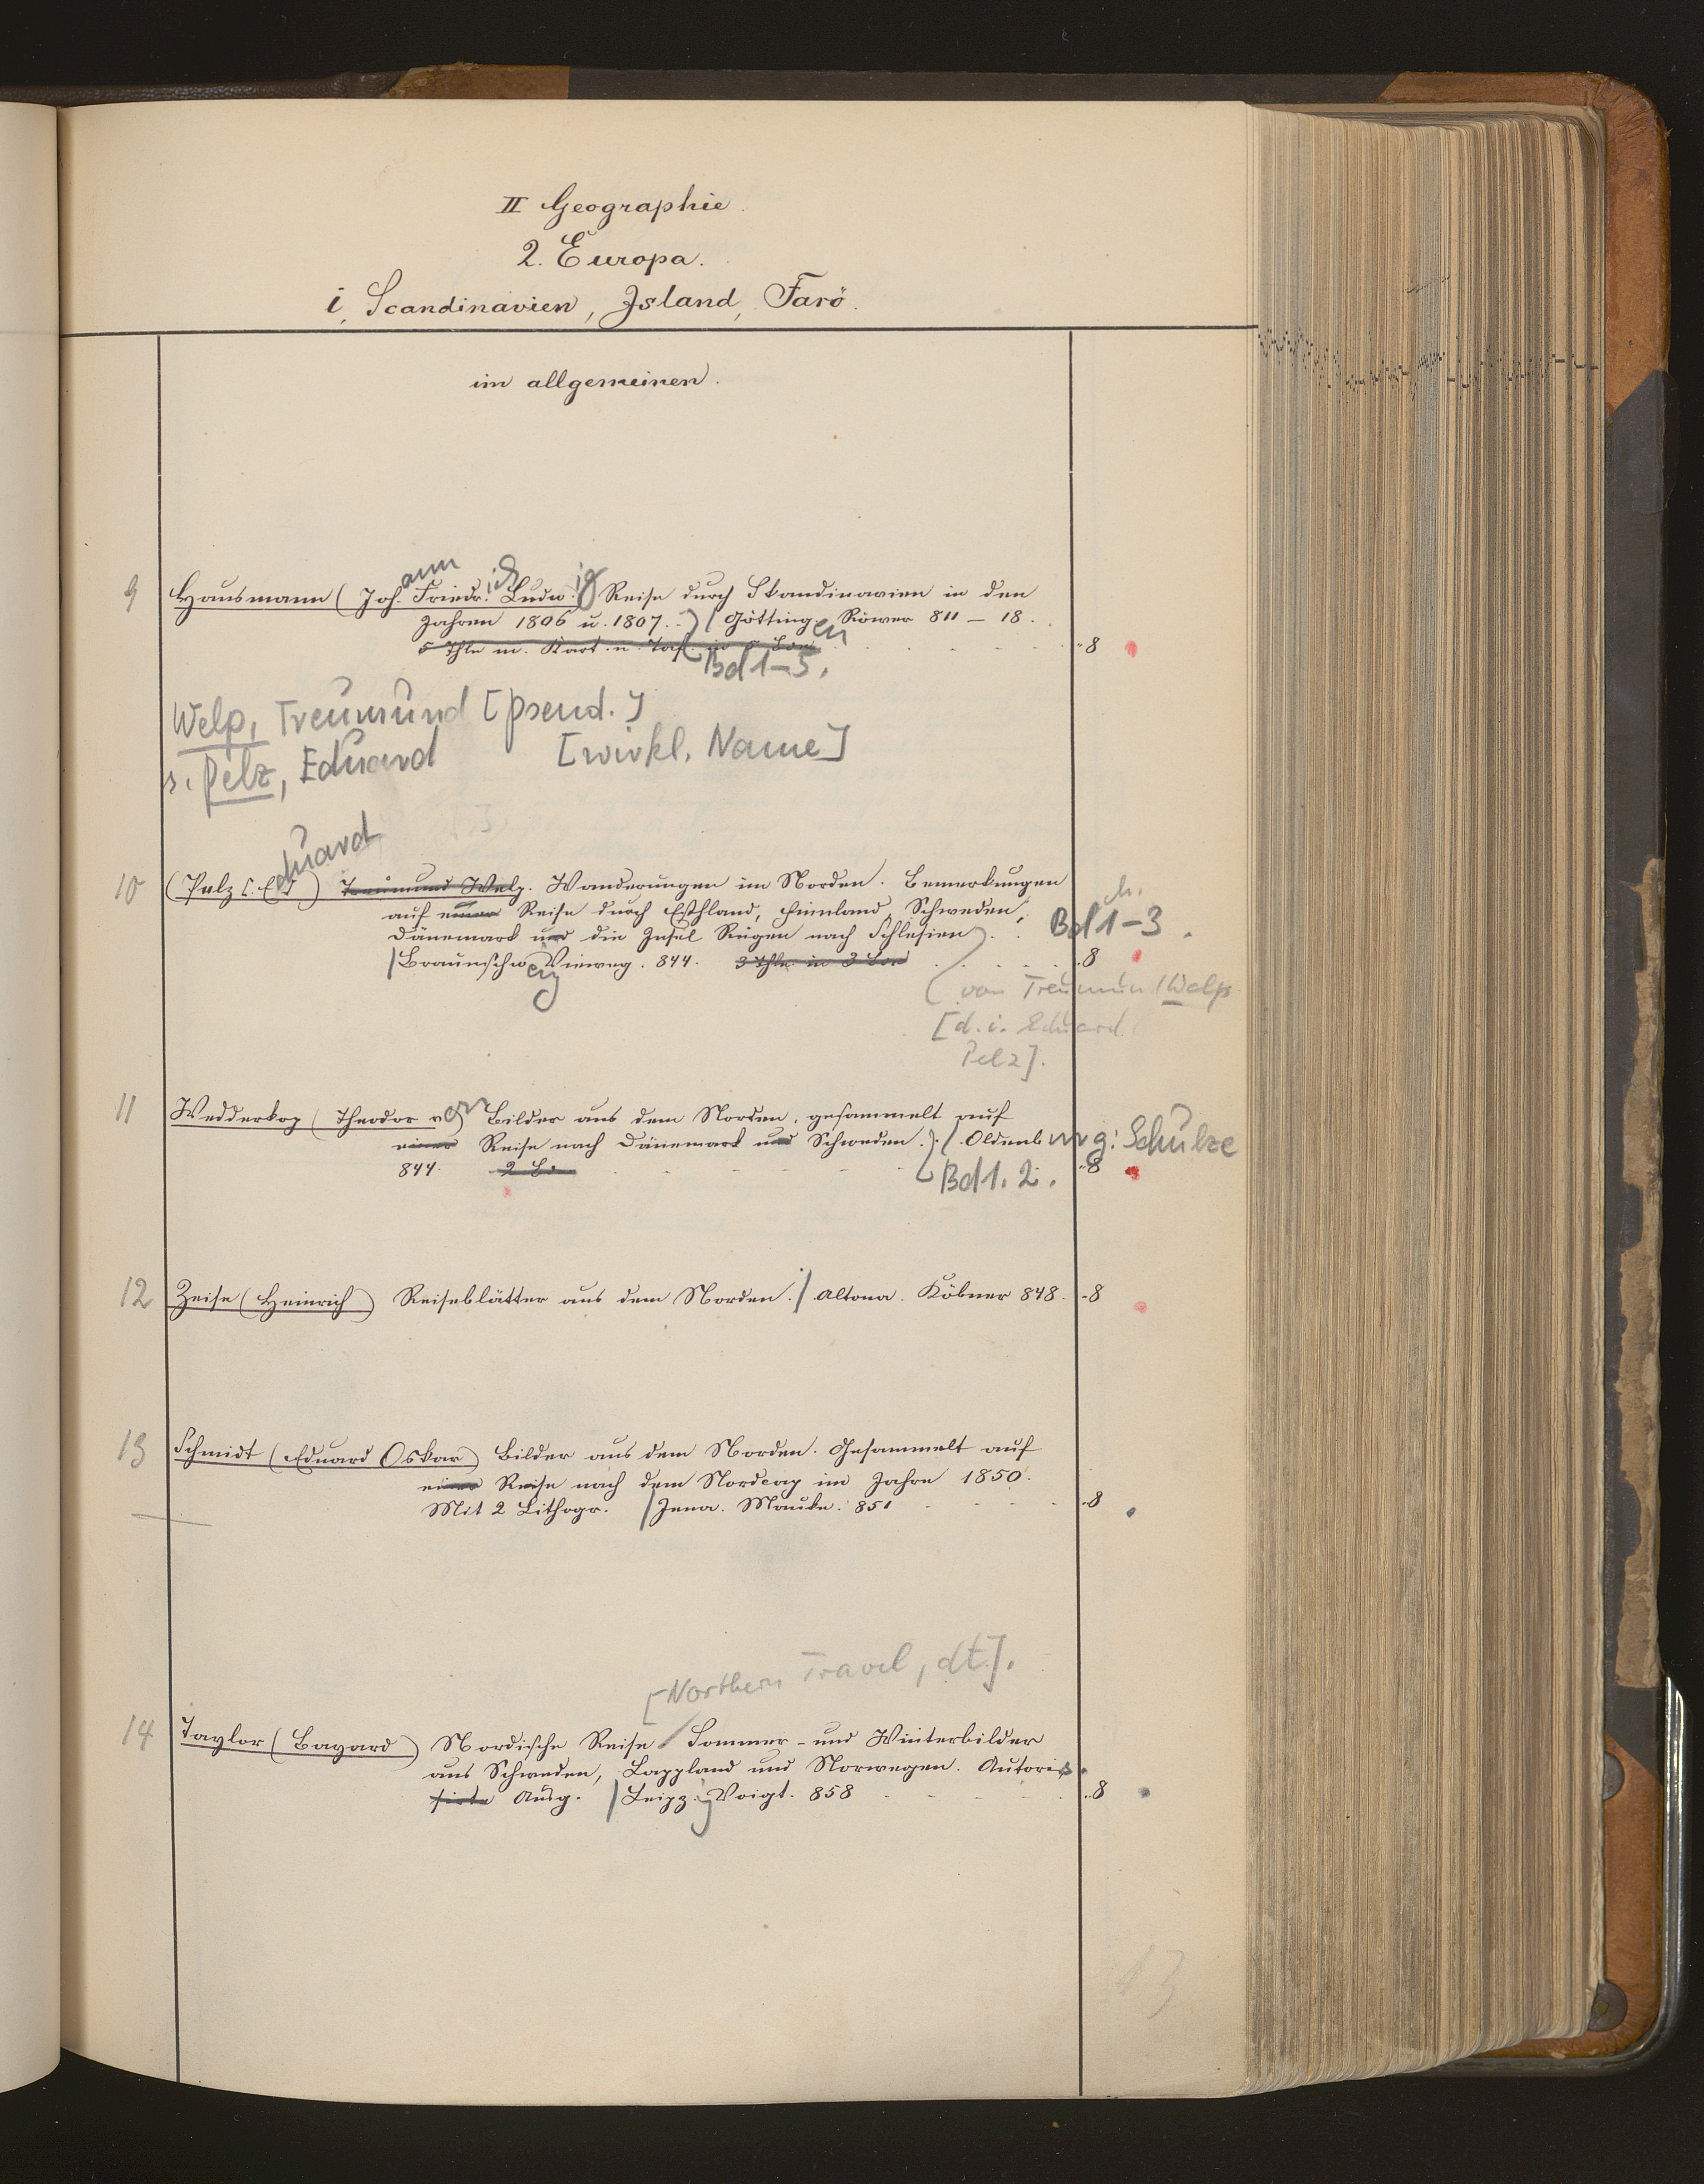 II Geographie.
2. Europa.
i, Scandinavien, Island, Farö.
im allgemeinen.
9 Hausmann (Johann Friedrich Ludwig) Reise durch Skandinavien in den
Jahren 1806 u. 1807. Göttingen Röwer 811–18.
5 Thle m. Kart. u. Taf. in 5 Bdn 8
Bd 1–5.
Welp, Treumund [pseud.]
s. Pelz, Eduard [wirkl. Name]
10 (Pelz Eduard) Treumund Welp. Wanderungen im Norden. Bemerkungen
auf einer Reise durch Esthland, Finnland, Schweden,
Dänemark und die Insel Rügen nach Schlesien. Bd 1–3.
Braunschweig Vieweg. 844. 3 Thle in 3 Bdn 8
von Treumund Welp
[d. i. Eduard
Pelz].
11 Wedderkop (Theodor von) Bilder aus dem Norden, gesammelt auf
einer Reise nach Dänemark und Schweden. Oldenburg: Schulze
844. 2 Bde 8
Bd 1. 2.
12 Zeise (Heinrich) Reiseblätter aus dem Norden. Altona. Köbner 848. 8
13 Schmidt (Eduard Oskar) Bilder aus dem Norden. Gesammelt auf
einer Reise nach dem Nordcap im Jahre 1850.
Mit 2 Lithogr. Jena. Mauke. 851 8
[Northern Travel, dt.].
14 Taylor (Bayard) Nordische Reise Sommer- und Winterbilder
aus Schweden, Lappland und Norwegen. Autoris.
sirte Ausg. Leipzig Voigt. 858 8
13